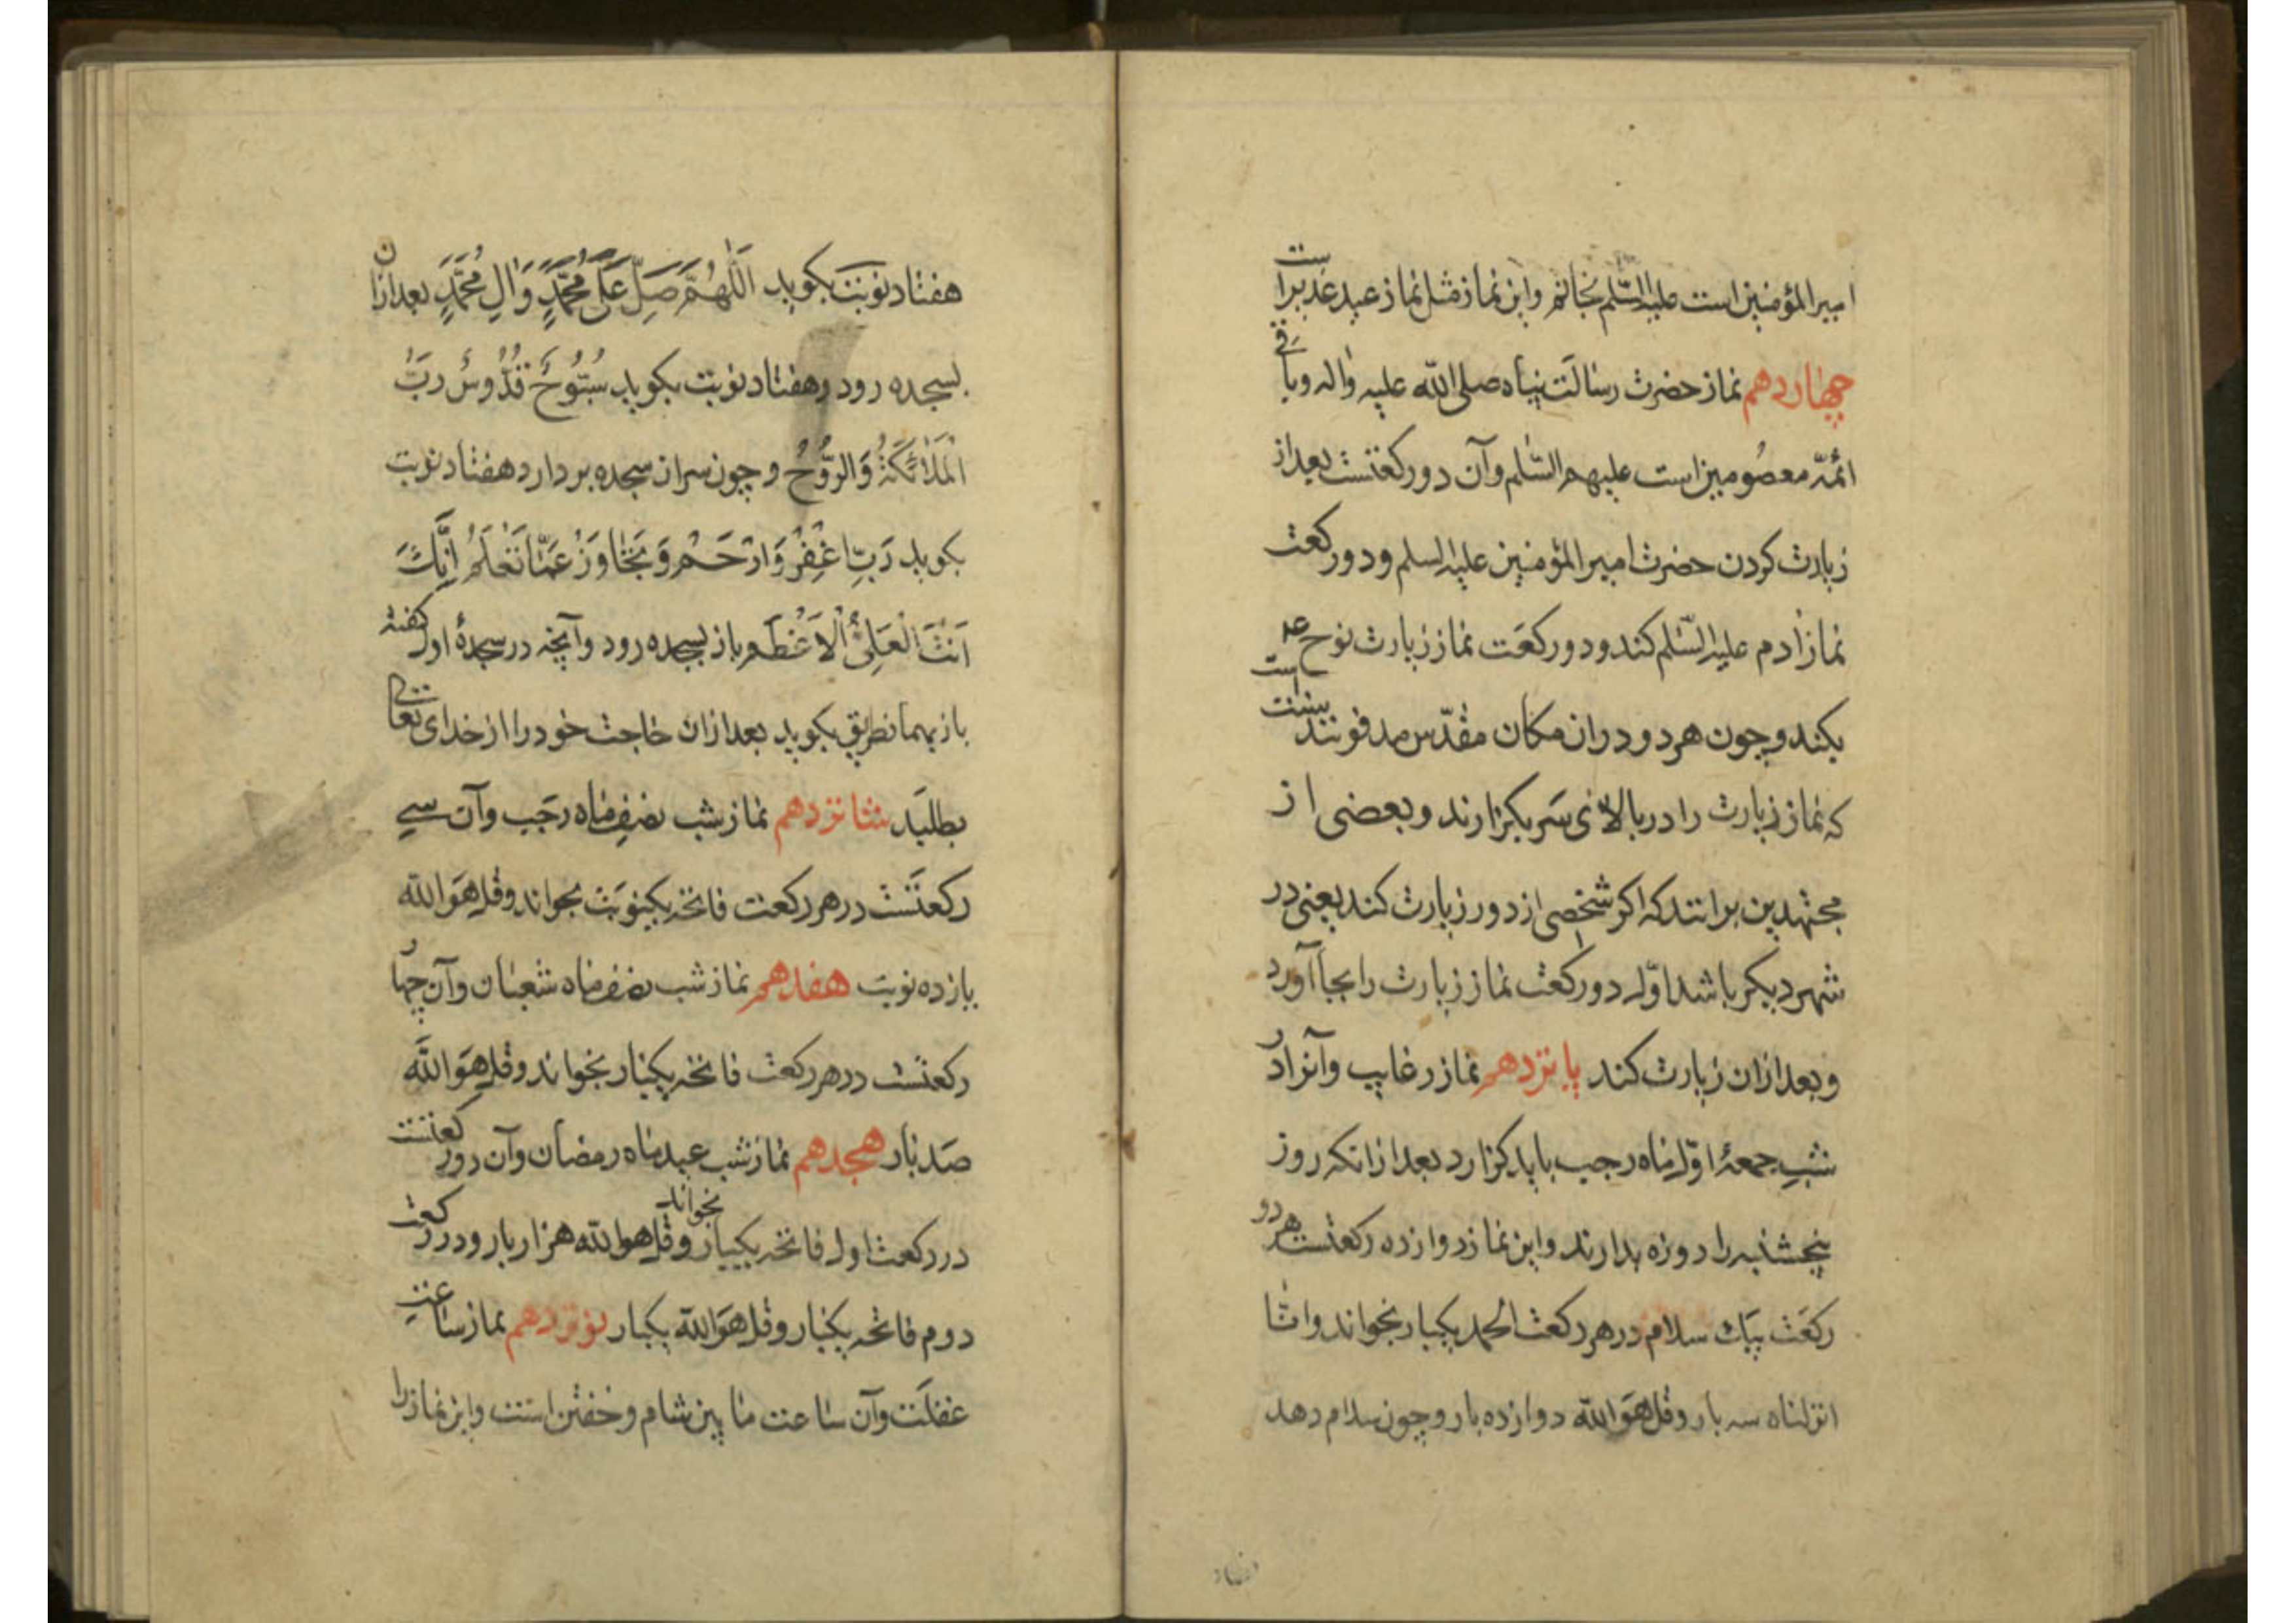 امیرالمؤمنین است علیه السّلم بخاتم واین نماز مثل نماز عید غدیراست
چهاردهم نماز حضرت رسالت پناه صلی الله علیه واله وباقی
ائمّه معصومین است علیهم السّلم وآن دو رکعتست بعد از
زیارت کردن حضرت امیرالمؤمنین علیه السلم ودو رکعت
نماز ادم علیه السّلم کند ودو رکعت نماز زیارت نوح ع
بکند وچون هر دو دران مکان مقدّس مدفونند سنت است
که نماز زیارت را در بالای سر بکزارند وبعضی از
مجتهدین برانند که اکر شخصی از دور زیارت کند یعنی در
شهر دیکر باشد اوّل دو رکعت نماز زیارت را بجا آورد
وبعد ازان زیارت کند پانزدهم نماز رغایب وآنرا در
شب جمعهٔ اوّل ماه رجب باید کزارد بعد ازانکه روز
پنجشنبه را روزه بدارند واین نماز دوازده رکعتست هر دو
رکعت بیک سلام در هر رکعت الحمد یکبار بخواند وانّا
انزلناه سه بار وقل هو الله دوازده بار وچون سلام دهد
هفتاد
هفتاد نوبت بکوید اَللّٰهُمَّ صَلِّ عَلَی مُحَمَّدٍ وَاٰلِ مُحَمَّدٍ بعد ازان
بسجده رود وهفتاد نوبت بکوید سُبُّوحٌ قُدُّوسٌ رَبُّ
الْمَلٰائِکَةِ وَالرُّوحُ وچون سر از سجده بردارد هفتاد نوبت
بکوید رَبِّ اغْفِرْ وَارْحَمْ وَتَجٰاوَزْ عَمّٰا تَعْلَمُ اِنَّکَ
اَنْتَ الْعَلِیُّ الْاَعْظَم باز بسجده رود وآنچه در سجدهٔ اول کفته
باز بهمانطریق بکوید بعد ازان حاجت خود را از خدای تعالی
بطلبد شانزدهم نماز شب نصف ماه رجب وآن سی
رکعتست در هر رکعت فاتحه یکنوبت بخواند وقل هو الله
یازده نوبت هفدهم نماز شب نصف ماه شعبان وآن چهار
رکعتست در هر رکعت فاتحه یکبار بخواند وقل هو الله
صد بار هجدهم نماز شب عید ماه رمضان وآن دو رکعتست
در رکعت اول فاتحه یکبار بخواند وقل هو الله هزار بار ودر رکعت
دوم فاتحه یکبار وقل هو الله یکبار نوزدهم نماز ساعت
غفلت وآن ساعت ما بین شام وخفتن است واین نماز را